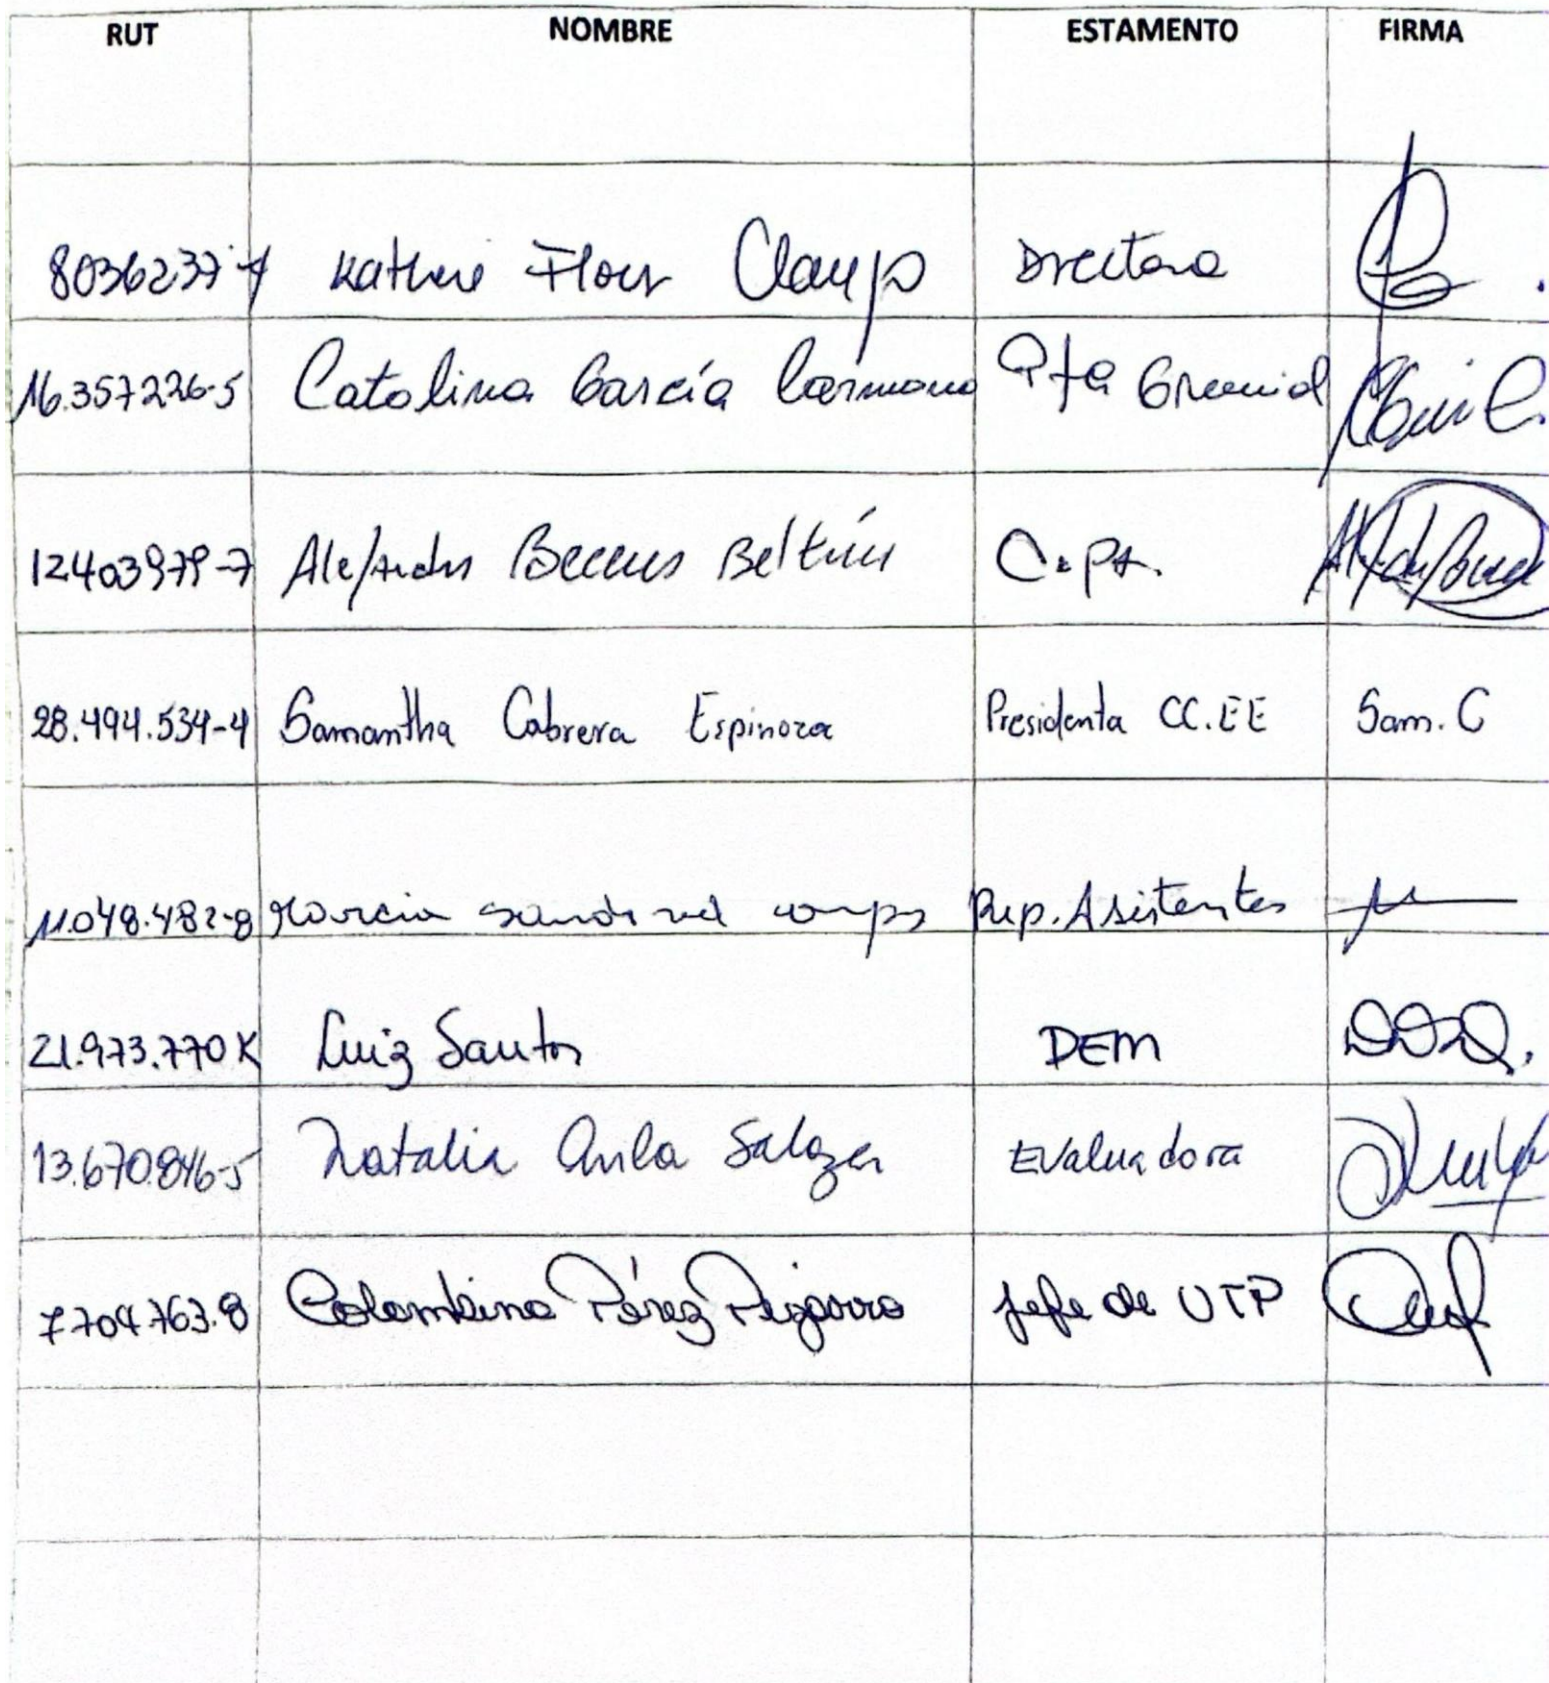 RUT NOMBRE ESTAMENTO FIRMA
Flores Directora
16.357226-5 Catalina García Carmona Pta Gremial
12403979-7 Alejandro Becerra Beltrán C.PA.
28.494.534-4 Samantha Cabrera Espinoza Presidenta CC.EE Sam. C
11.048.482-8 Marcia Sandoval Campos Rep. Asistentes
21.973.770 K Luiz Santos DEM
13.670.846-5 Natalia Avila Salazar Evaluadora
7704763.8 Colombina Pérez Pizarro Jefe de UTP